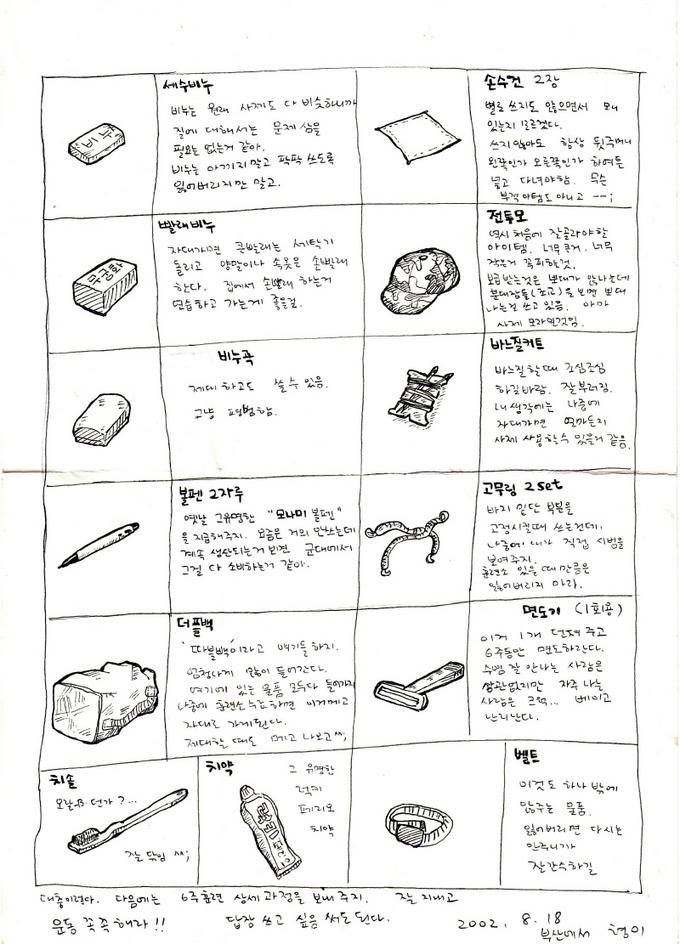 세수비누
비누는 원래 사제도 다 비슷하니까
질에 대해서는 문제 삼을
필요는 없는거 같아.
비누는 아끼지 말고 팍팍 쓰도록
잃어버리지만 말고.
비누
손수건 2장
별로 쓰지도 않으면서 모니
있는지 모르겠다.
쓰지 않아도 항상 뒷주머니
왼쪽인가 오른쪽인가 하여튼
넣고 다녀야함. 무슨
부적 아템도 아니고 --;
빨래비누
자대가면 큰빨래는 세탁기
돌리고 양말이나 속옷은 손빨래
한다. 집에서 손빨래 하는거
연습하고 가는게 좋을걸.
무궁화
전투모
역시 처음에 잘 골라야 할
아이템. 너무 큰거. 너무
작은거 꼭 피하는것.
보급 받는것은 뽀대가 안나는데
분대장들(조교)을 보면 뽀대
나는걸 쓰고 있음. 아마
사제 모자일것임.
비누곽
제대 하고도 쓸 수 있음.
그냥 평범함.
바느질키트
바느질 할 때 조심조심
하길 바람. 잘 부러짐.
내 생각에는 나중에
자대가면 얼마든지
사제 사용할 수 있을거 같음.
볼펜 2자루
옛날 그유명한 "모나미 볼펜"
을 지급해주지. 요즘은 거의 안쓰는데
계속 생산되는거 보면 군대에서
그걸 다 소비하는거 같아.
고무링 2set
바지 밑단 부분을
고정시킬때 쓰는건데.
나중에 내가 직접 시범을
보여주지.
훈련소 있을때 만큼은
잃어버리지 마라.
더플백
'따블백'이라고 얘기들 하지.
엄청나게 많이 들어간다.
여기에 있는 물품 모두다 들어가지
나중에 훈련소 수료하면 이거메고
자대로 가게된다.
제대할 때도 메고 나보고 ^^;
면도기 (1회용)
이거 1개 던져 주고
6주동안 면도하란다.
수염 잘 안나는 사람은
상관 없지만 자주 나는
사람은 크헉... 베이고
난리난다.
치솔
오랄-B 던가?...
잘 닦임 ^^;
치약
그 유명한
럭키
페리오
치약
벨트
이것도 하나 밖에
안주는 물품.
잃어버리면 다시는
안주니까
잘 간수하길
대충이렇다. 다음에는 6주훈련 상세 과정을 보내 주지. 잘 지내고
운동 꼭꼭 해라!! 답장 쓰고 싶음 써도 된다.
2002. 8. 18
부산에서 형이